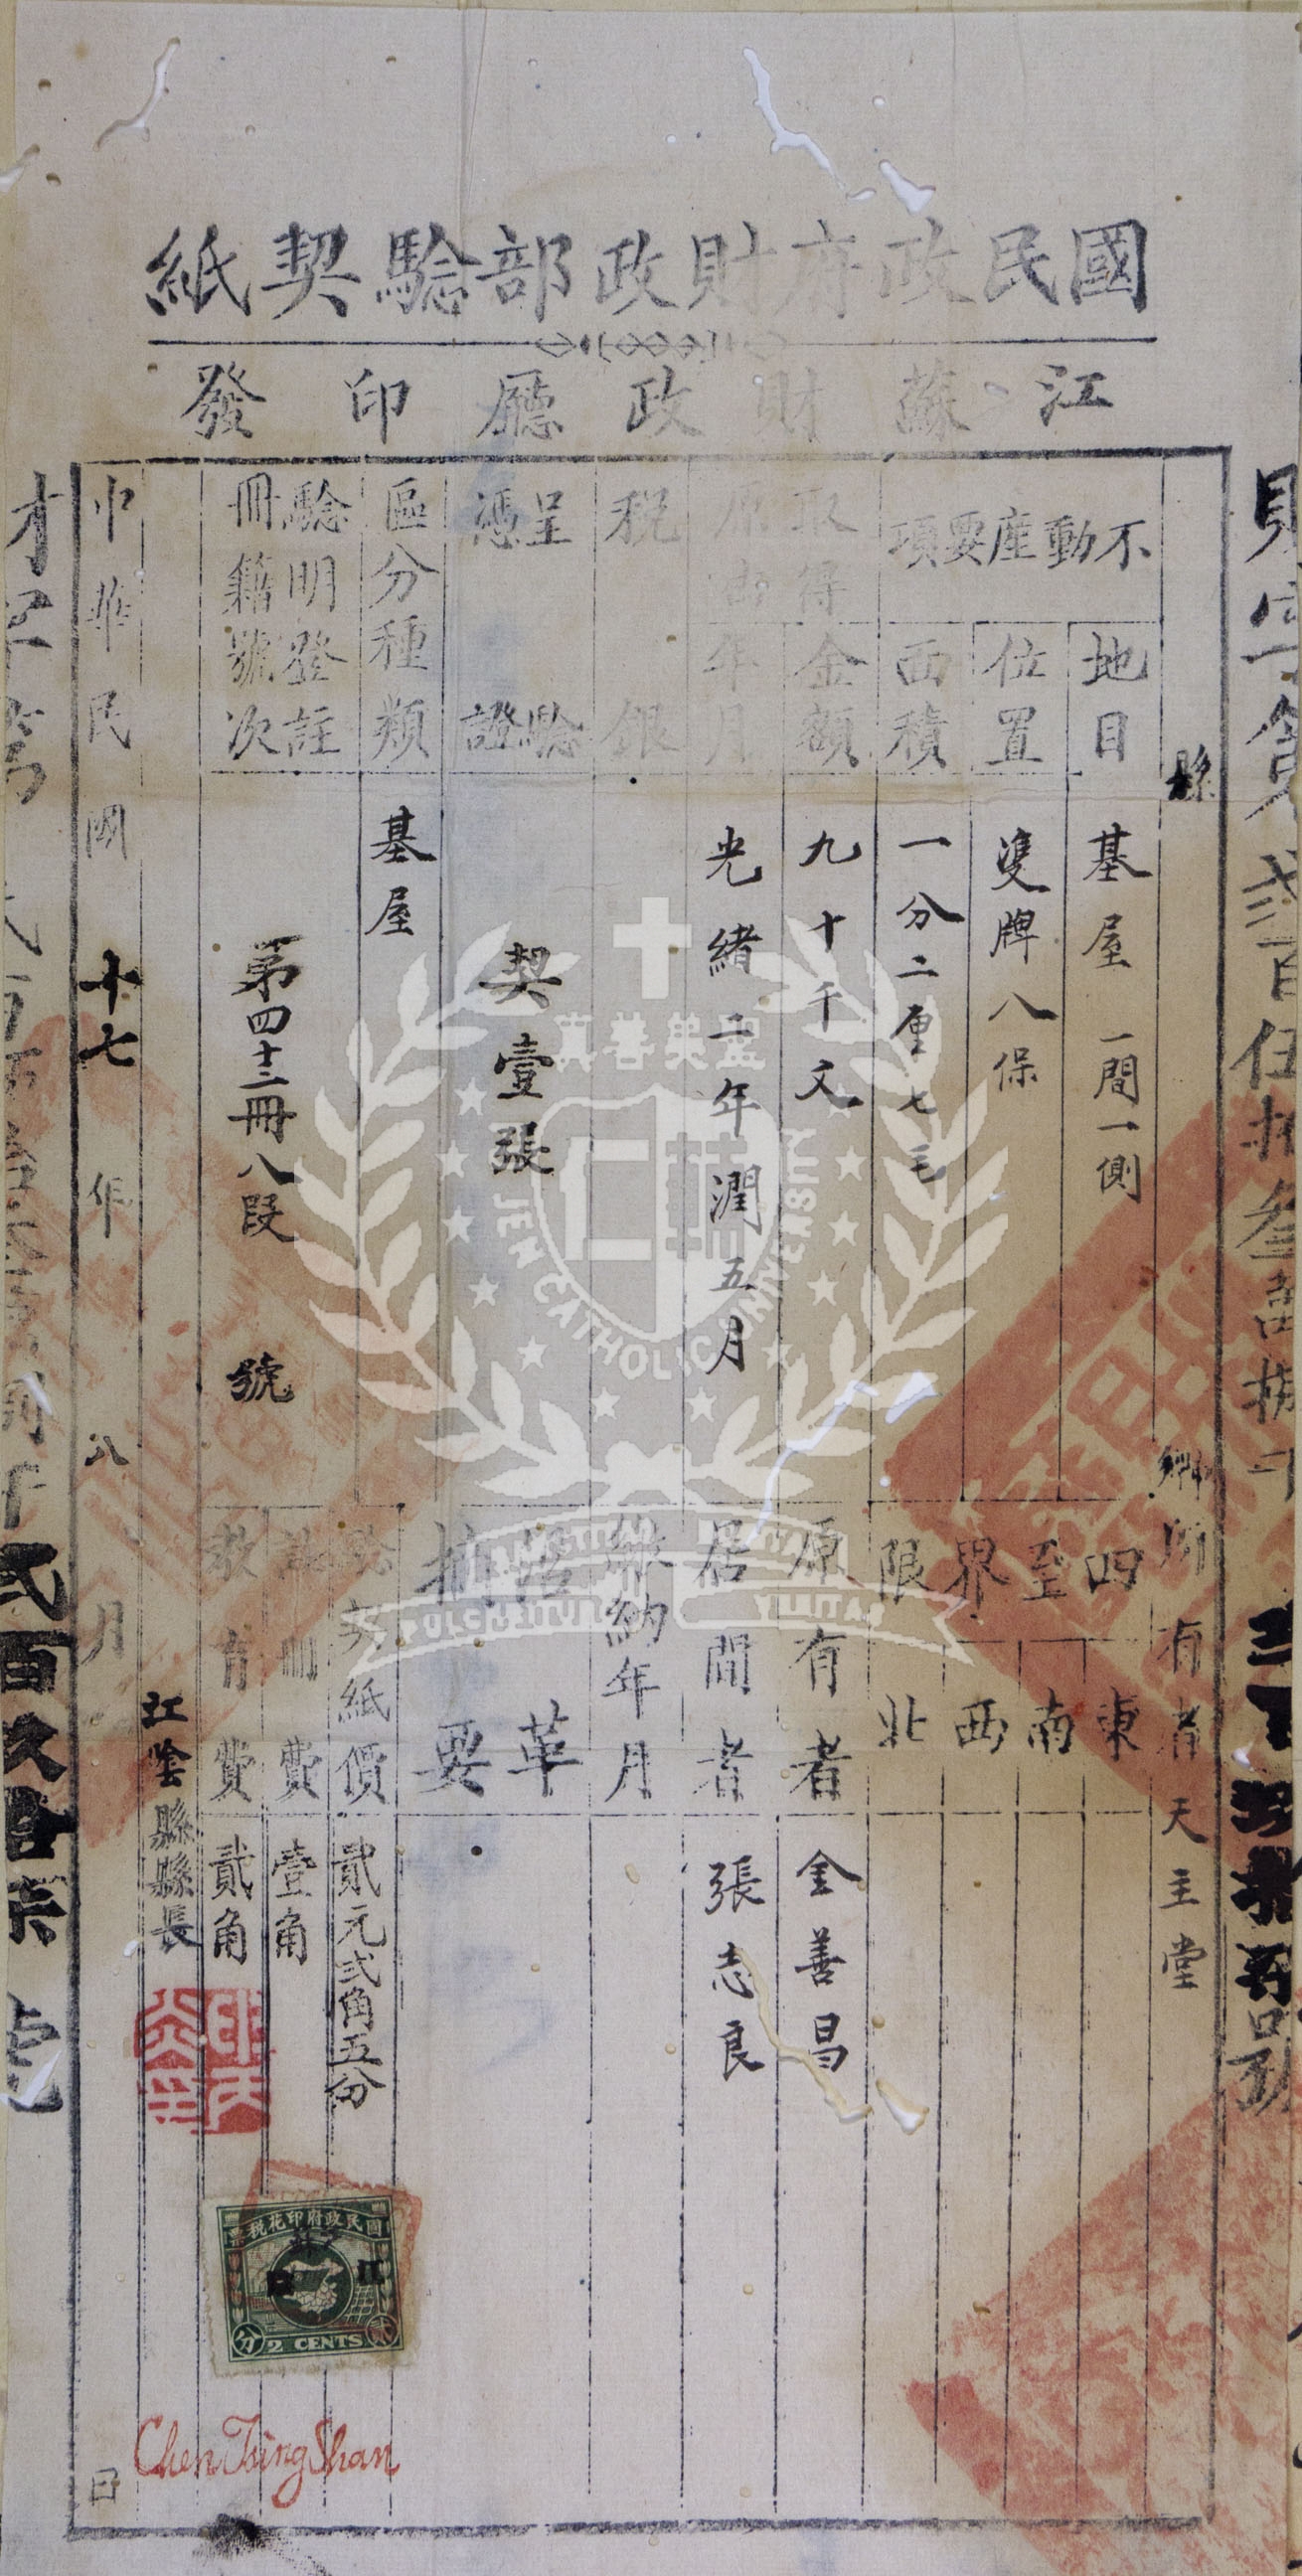 國民政府財政部驗契紙
江蘇財政廳印發
縣
鄉
所有者 天主堂
不動產要項
地目 基屋一間一側
位置 雙牌八保
面積 一分二厘七毛
四至界限
東
南
西
北
取得金額 九十千文
原有者 金善昌
年月 光緒二年潤五月
居間者 張志良
稅銀
繳納年月
呈驗憑證 契壹張
沿革摘要
區分種類 基屋
驗契紙價 貳元弍角五分
註冊費 壹角
教育費 貳角
驗明登註冊籍號次 第四十三冊八段 號
江陰縣縣長
中華民國十七年八月 日
國民政府印花稅票
2 CENTS
Chen Tsing Shan
真善美聖
JEN CATHOLIC UNIVERSITY